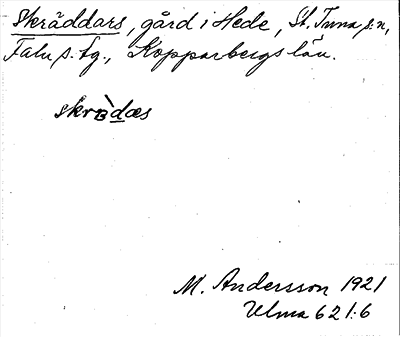 Skräddars, gård i Hede, St. Tuna s:n,
Falu s. tg., Kopparbergs län.
M. Andersson 1921
Ulma 621:6